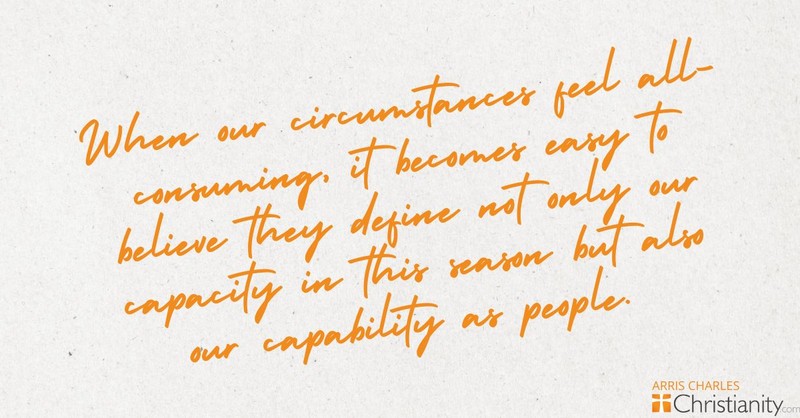 When our circumstances feel all-
consuming, it becomes easy to
believe they define not only our
capacity in this season but also
our capability as people.
ARRIS CHARLES
Christianity.com